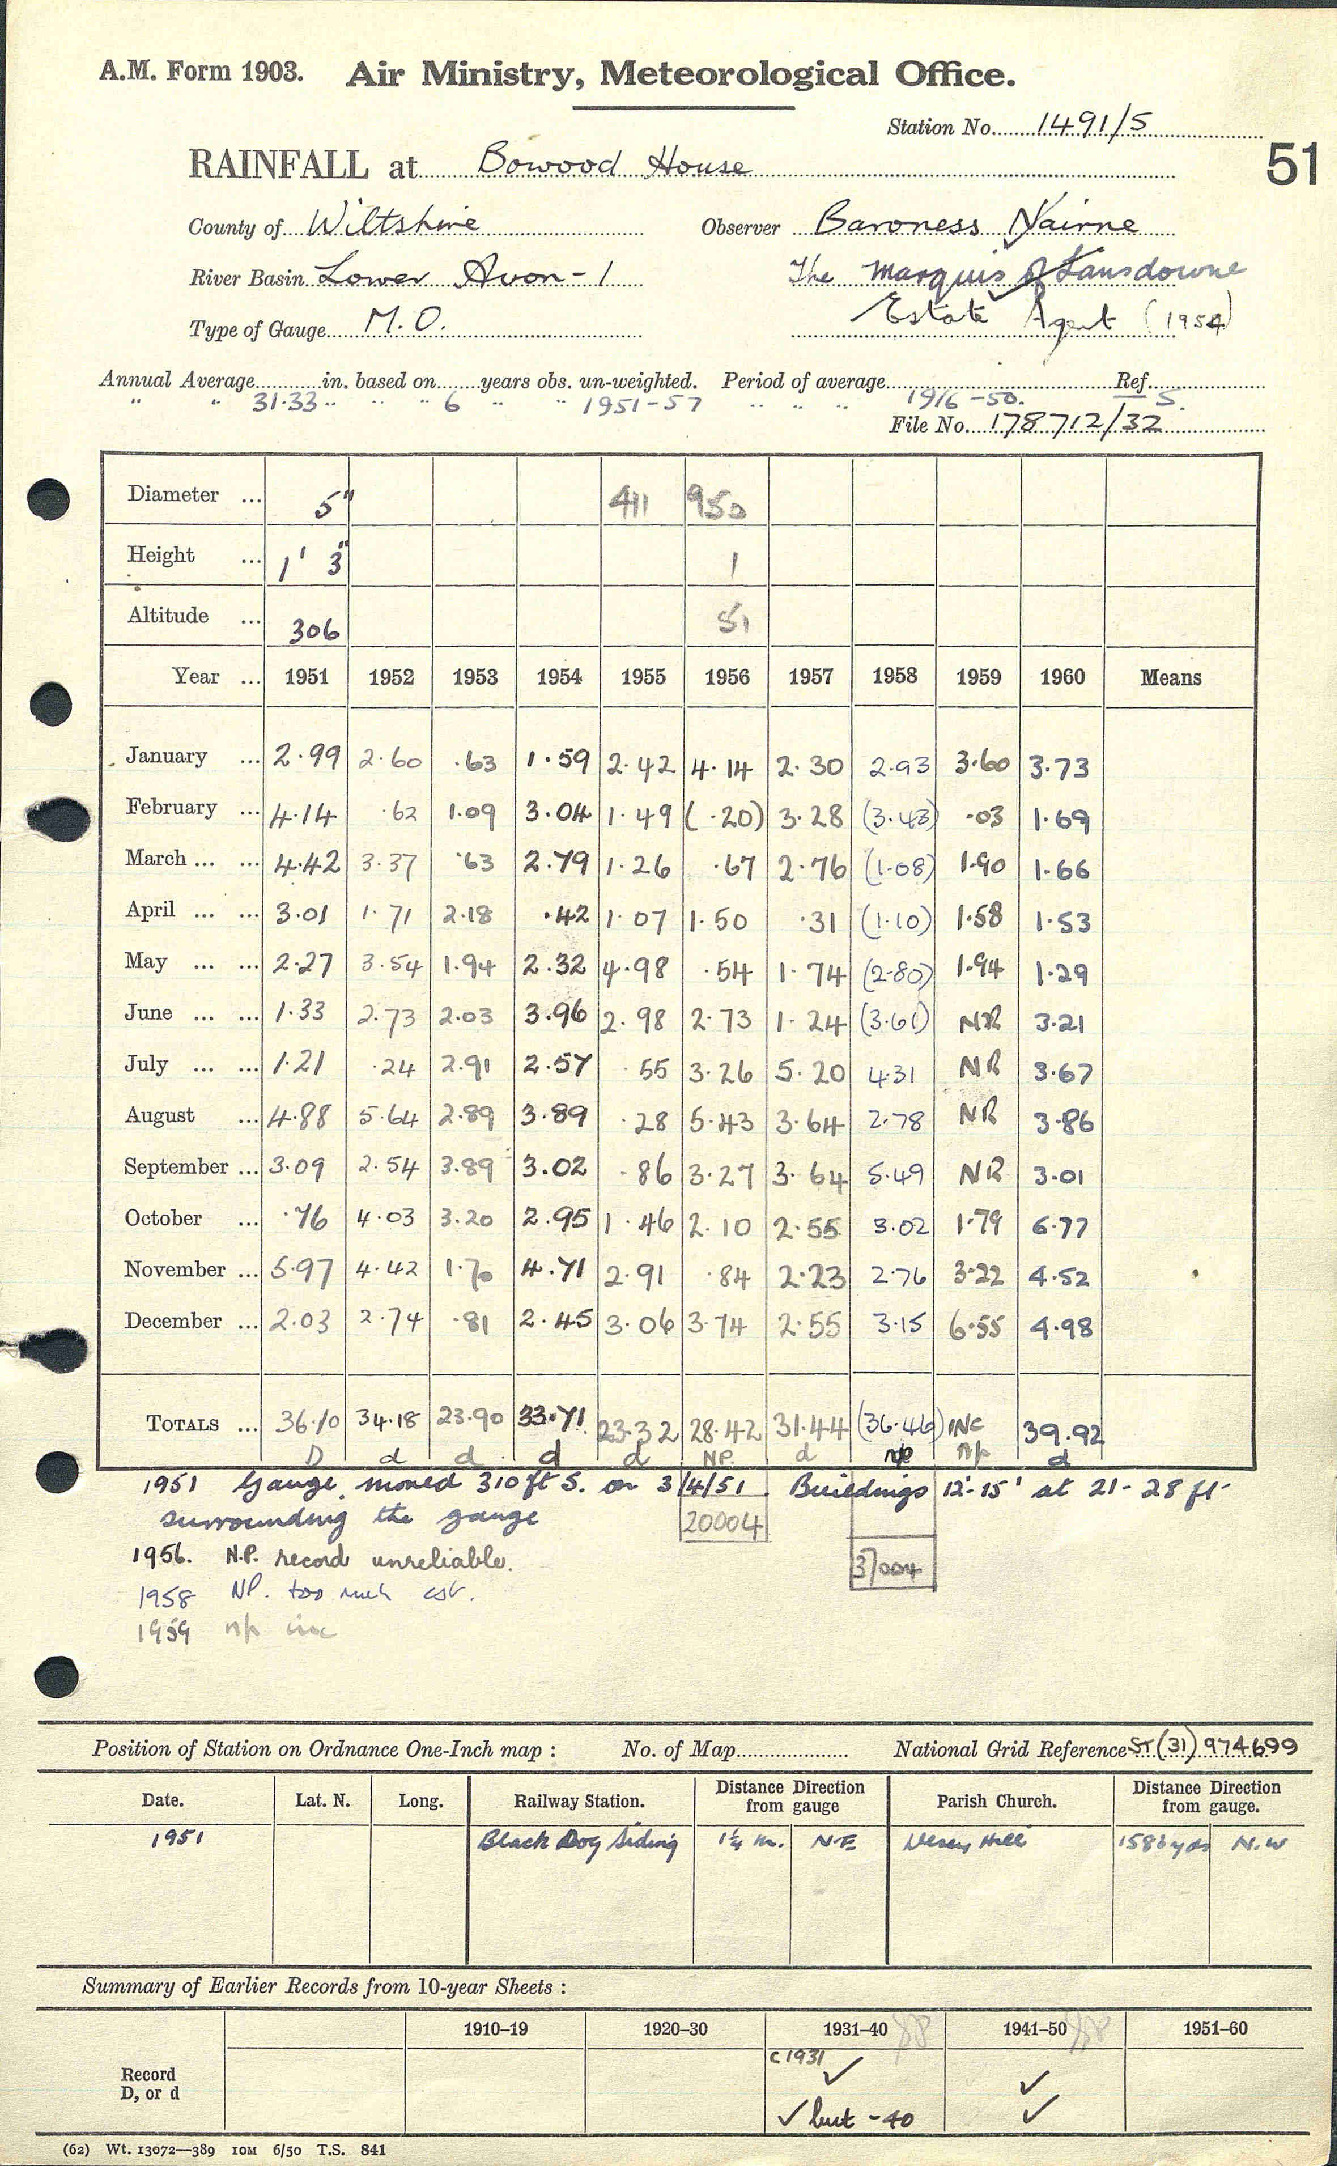 A.M. Form 1903. Air Ministry, Meteorological Office.
Station No. 1491/5
51
RAINFALL at Bowood House
County of Wiltshire Observer Baroness Nairne
River Basin Lower Avon-1 The Marquis of Lansdowne
Type of Gauge M.O. Estate Agent (1954)
Annual Average in. based on years obs. un-weighted. Period of average Ref.
" " 31.33 " " " 6 " " 1951-57 " " " 1916-50. S.
File No. 178712/32
Diameter ... 5" 411 950
Height ... 1' 3" 1
Altitude ... 306 51
Year ... 1951 1952 1953 1954 1955 1956 1957 1958 1959 1960 Means
January ... 2.99 2.60 .63 1.59 2.42 4.14 2.30 2.93 3.60 3.73
February ... 4.14 .62 1.09 3.04 1.49 (.20) 3.28 (3.43) .03 1.69
March ... ... 4.42 3.37 .63 2.79 1.26 .67 2.76 (1.08) 1.90 1.66
April ... ... 3.01 1.71 2.18 .42 1.07 1.50 .31 (1.10) 1.58 1.53
May ... ... 2.27 3.54 1.94 2.32 4.98 .54 1.74 (2.80) 1.94 1.29
June ... ... 1.33 2.73 2.03 3.96 2.98 2.73 1.24 (3.61) NR 3.21
July ... ... 1.21 .24 2.91 2.57 .55 3.26 5.20 4.31 NR 3.67
August ... 4.88 5.64 2.89 3.89 .28 5.43 3.64 2.78 NR 3.86
September ... 3.09 2.54 3.89 3.02 .86 3.27 3.64 5.49 NR 3.01
October ... .76 4.03 3.20 2.95 1.46 2.10 2.55 3.02 1.79 6.77
November ... 5.97 4.42 1.70 4.71 2.91 .84 2.23 2.76 3.22 4.52
December ... 2.03 2.74 .81 2.45 3.06 3.74 2.55 3.15 6.55 4.98
TOTALS ... 36.10 34.18 23.90 33.71 23.32 28.42 31.44 (36.46) INC 39.92
D d d d d NP d np np d
1951 Gauge moved 310 ft S. on 3/4/51. Buildings 12'-15' at 21-28 ft
surrounding the gauge
20004
1956. N.P. record unreliable.
37004
1958 NP. too much est.
1959 n/p inc
Position of Station on Ordnance One-Inch map : No. of Map National Grid Reference ST (31) 974699
Date. Lat. N. Long. Railway Station. Distance Direction from gauge Parish Church. Distance Direction from gauge.
1951 Black Dog Siding 1¼ m. N.E Hill 1586 yds N.W
Summary of Earlier Records from 10-year Sheets :
1910–19 1920–30 1931–40 1941–50 1951–60
Record
D, or d
c 1931 ✓ ✓
✓ but -40 ✓
(62) Wt. 13072—389 10M 6/50 T.S. 841